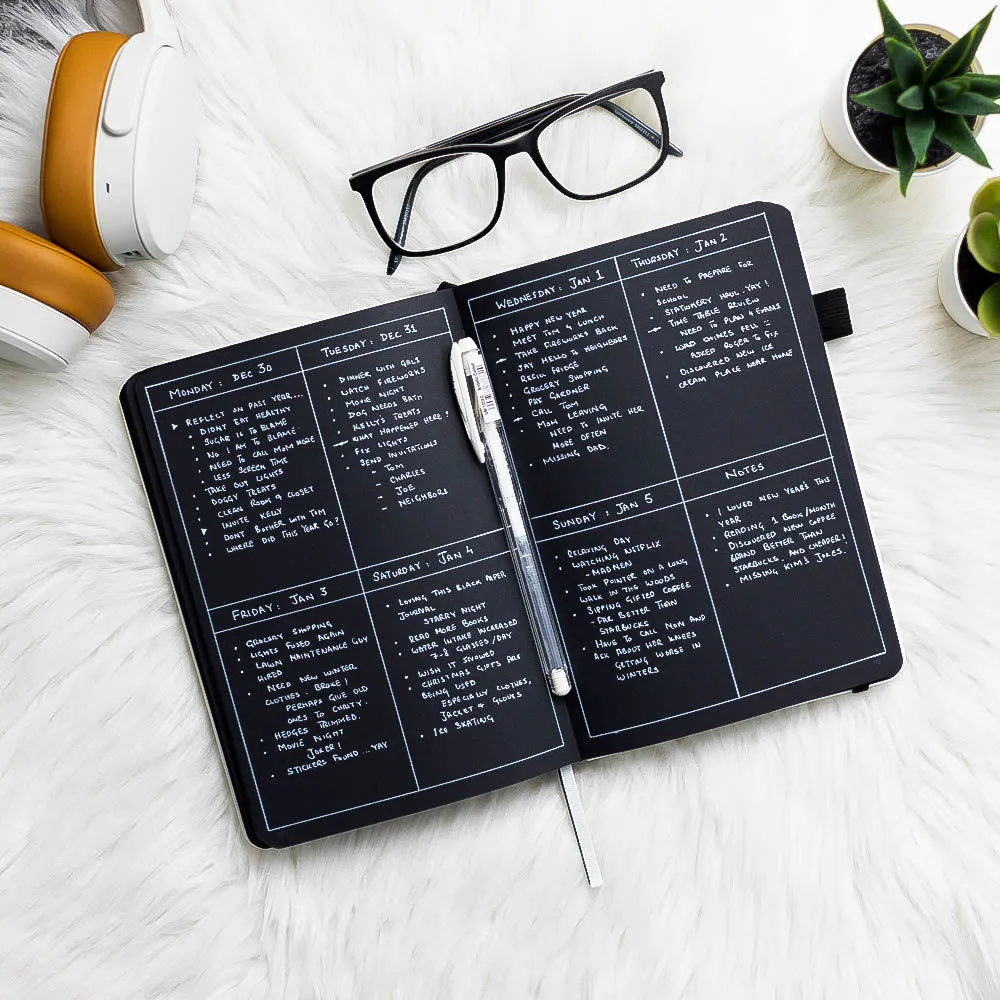 MONDAY : DEC 30
REFLECT ON PAST YEAR...
DIDNT EAT HEALTHY
SUGAR IS TO BLAME
NO I AM TO BLAME
NEED TO CALL MOM MORE
LESS SCREEN TIME
TAKE OUT LIGHTS
DOGGY TREATS
CLEAN ROOM & CLOSET
INVITE KELLY
DONT BOTHER WITH TIM
WHERE DID THIS YEAR GO?
TUESDAY : DEC 31
DINNER WITH GALS
WATCH FIREWORKS
MOVIE NIGHT
DOG NEEDS BATH
KELLY'S TREATS
WHAT HAPPENED HERE!
FIX LIGHTS
SEND INVITATIONS
- TOM
- CHARLES
- JOE
- NEIGHBORS
FRIDAY : JAN 3
GROCERY SHOPPING
LIGHTS FUSED AGAIN
HIRED LAWN MAINTENANCE GUY
NEED NEW WINTER
CLOTHES. BROKE!
PERHAPS GIVE OLD
ONES TO CHARITY.
HEDGES TRIMMED.
MOVIE NIGHT
JOKER!
STICKERS FOUND...YAY
SATURDAY : JAN 4
LOVING THIS BLACK PAPER
JOURNAL
STARRY NIGHT
READ MORE BOOKS
WATER INTAKE INCREASED
7-8 GLASSES/DAY
WISH IT SNOWED
CHRISTMAS GIFTS ARE
BEING USED
ESPECIALLY CLOTHES,
JACKET & GLOVES
ICE SKATING
WEDNESDAY : JAN 1
HAPPY NEW YEAR
MEET TIM 4 LUNCH
TAKE FIREWORKS BACK
SAY HELLO TO NEIGHBORS
REFILL FRIDGE
GROCERY SHOPPING
PAY GARDNER
CALL TOM
MOM LEAVING
NEED TO INVITE HER
MORE OFTEN
MISSING DAD.
THURSDAY : JAN 2
NEED TO PREPARE FOR
SCHOOL
STATIONERY HAUL..YAY!
TIME TABLE REVIEW
NEED TO PLAN 4 EXAMS
WIND CHIMES FELL
ASKED ROGER TO FIX
DISCOVERED NEW ICE
CREAM PLACE NEAR HOME
SUNDAY : JAN 5
RELAXING DAY
WATCHING NETFLIX
- MADMEN
TOOK POINTER ON A LONG
WALK IN THE WOODS
SIPPING GIFTED COFFEE
- FAR BETTER THAN
STARBUCKS
HAVE TO CALL MOM AND
ASK ABOUT HER KNEES
GETTING WORSE IN
WINTERS
NOTES
I LOVED NEW YEAR'S THIS
YEAR
READING 1 BOOK/MONTH
DISCOVERED NEW COFFEE
BRAND BETTER THAN
STARBUCKS. AND CHEAPER!
MISSING KIM'S JOKES.